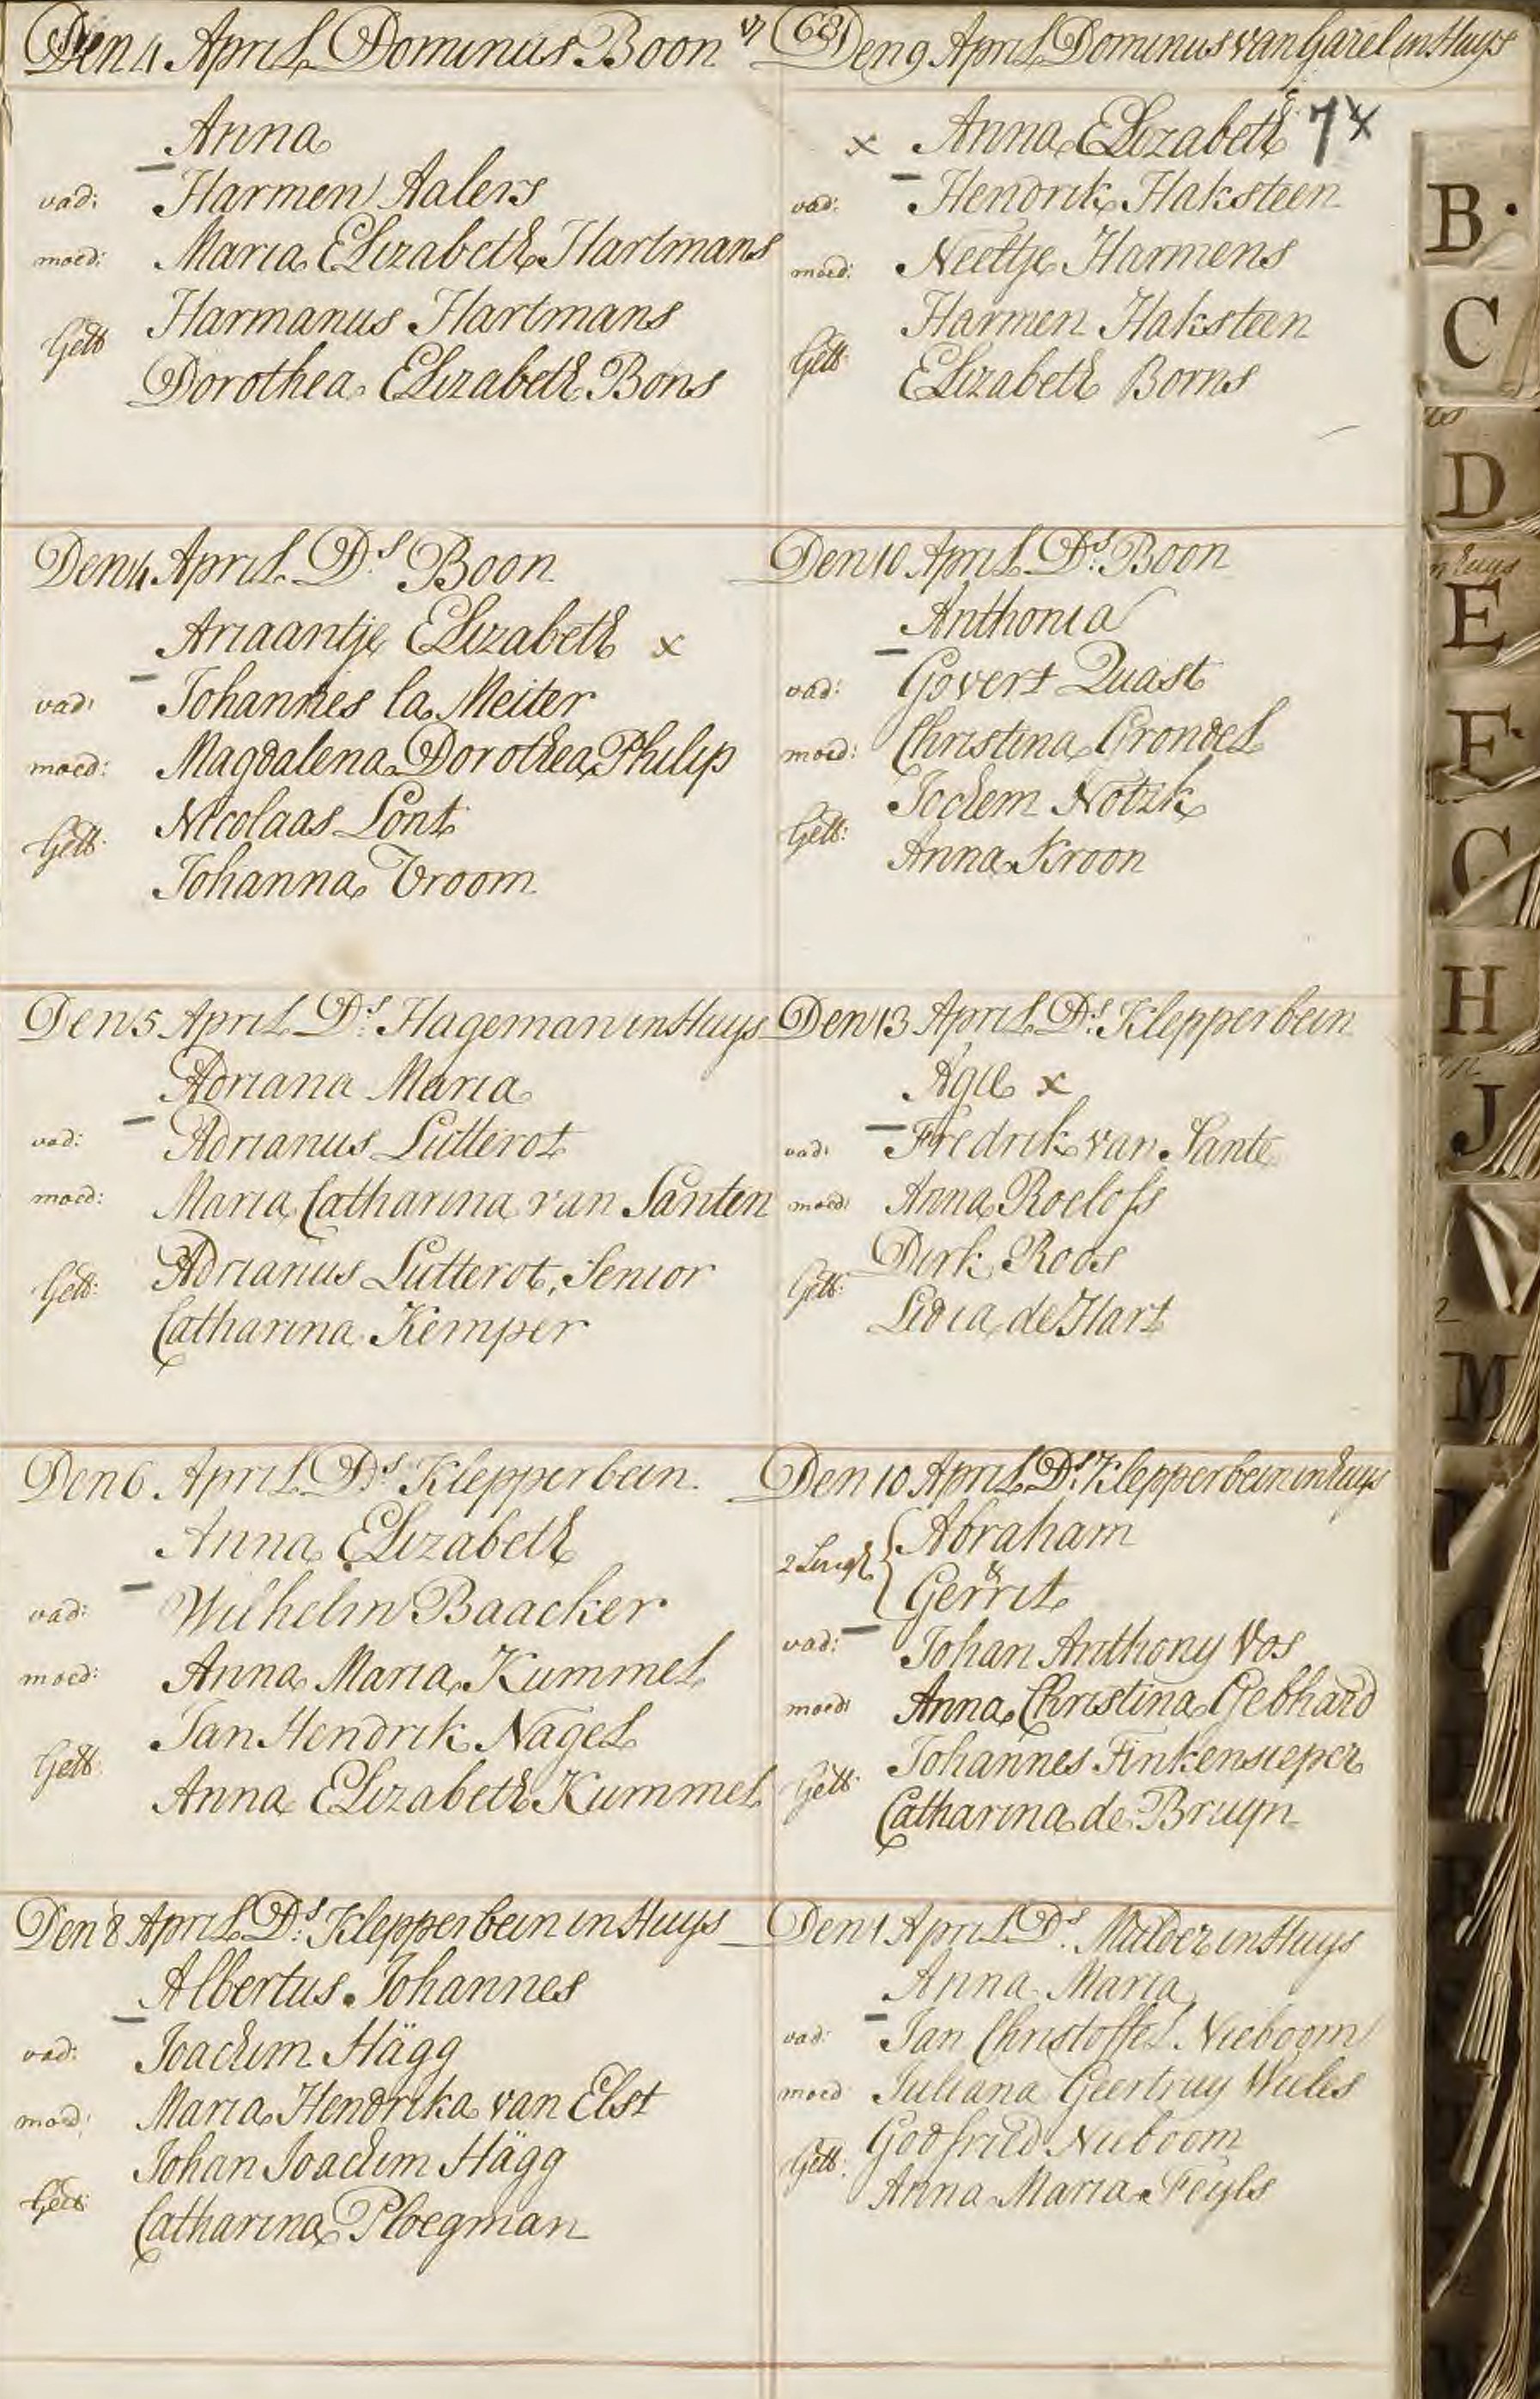 Den 4 April Dominus Boon
Anna
vad: Harmen Aalers
moed: Maria Elizabeth Hartmans
Gett Harmanus Hartmans
Dorothea Elizabeth Bons
Den 4 April Ds. Boon
Ariaantje Elizabeth x
vad: Johannes la Meiter
moed: Magdalena Dorothea Philip
Gett: Nicolaas Lont
Johanna Vroom
Den 5 April Ds. Hageman in Huys
Adriana Maria
vad: Adrianus Lutterot
moed: Maria Catharina van Santen
Gett: Adrianus Lutterot, Senior
Catharina Kemper
Den 6 April Ds. Klepperbein
Anna Elizabeth
vad: Wilhelm Baacker
moed: Anna Maria Kummel
Gett: Jan Hendrik Nagel
Anna Elizabeth Kummel
Den 8 April Ds. Klepperbein in Huys
Albertus Johannes
vad: Joachim Hägg
moed: Maria Hendrika van Elst
Johan Joachim Hägg
Gett: Catharina Ploegman
68
Den 9 April Dominus van Garel in Huys
x Anna Elizabeth 7 x
vad: Hendrik Haksteen
moed: Neeltje Harmens
Gett: Harmen Haksteen
Elizabeth Borns
Den 10 April Ds. Boon
Anthonia
vad: Govert Quast
moed: Christina Crondel
Gett: Jochem Notzk
Anna Kroon
Den 13 April Ds. Klepperbein
Agie x
vad: Fredrik van Sante
moed: Anna Roelofs
Gett: Dirk Roos
Lidia de Hart
Den 10 April Ds. Klepperbein in huys
2 Lingh { Abraham
& Gerrit
vad: Johan Anthony Vos
moed: Anna Christina Gebhard
Gett: Johannes Finkensieper
Catharina de Bruyn
Den 1 April Ds. Mulder in Huys
Anna Maria
vad: Jan Christoffel Nieboom
moed Juliana Geertruy Wieles
Gett: Godfried Nieboom
Anna Maria Feyls
B.
C
D
E
F
G
H
J
M